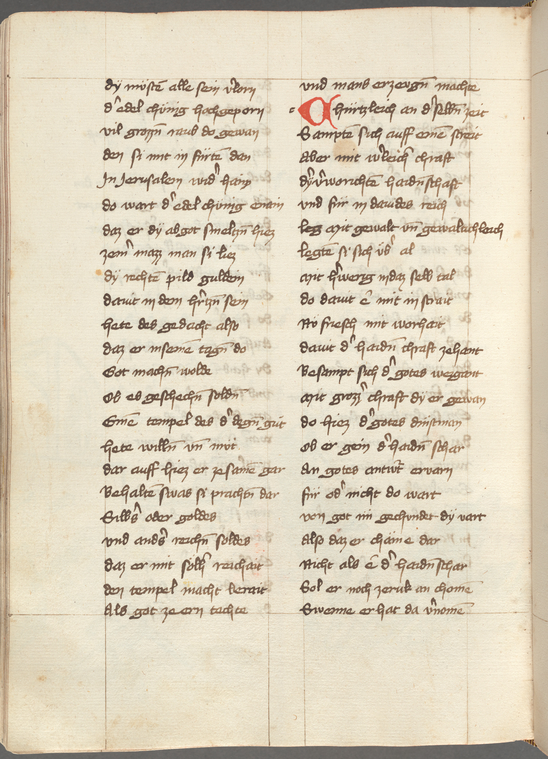 dÿ müsten alle sein v̓lorn
d̓ edel chünig hochgeporn
vil grozzñ raub do gewan
den si mit in fürtñ dan
In Jerusalem wid̓ haim
do wart d̓ edel chünig enain
daz er dÿ abgot smelczñ hiez
zem mazz man si liez
dÿ rechtñ pild guldem
dauit in dem h̓czñ sein
hete des gedacht also
daz er in seinē tagñ do
Got machñ wolde
Ob es geschechñ soldñ
Einē tempel des d̓ degñ gůt
hete willñ vñ můt
dar auff hiez er zesamē gar
Behaltē swas si prachtñ dar
Silb̓s oder goldes
vnd and̓s reichñ soldes
daz er mit sölh̓ reichait
den tempel macht berait
Als got ze ern tachte
vnd mans erzeugñ machte
Chürtzleich an d̓ selbñ zeit
Sampte sich auff einē streit
Aber mit w̓leich̓ chraft
dÿ v̓worchtē haidñschaft
vnd für in dauides reich
mit gewalt vñ gewaltichleich
legtē si sich v̓b̓ al
mit h̓werg in daz selb tal
do dauit ē mit in strait
No friesch mit worhait
dauit d̓ haidñ chraft zehant
Besampt sich d̓ gotes weigant
mit grozz̓ chraft dÿ er gewan
do hiez d̓ gotes dinstman
ob er gein d̓ haidñ schar
An gotes antwůrt ervarn
für od̓ nicht do wart
von got im gechündet dÿ vart
Also daz er chäme dar
Nicht als ē d̓ haidñ schar
Sol er noch zeruk an chomē
Swenne er hat da v̓nomē